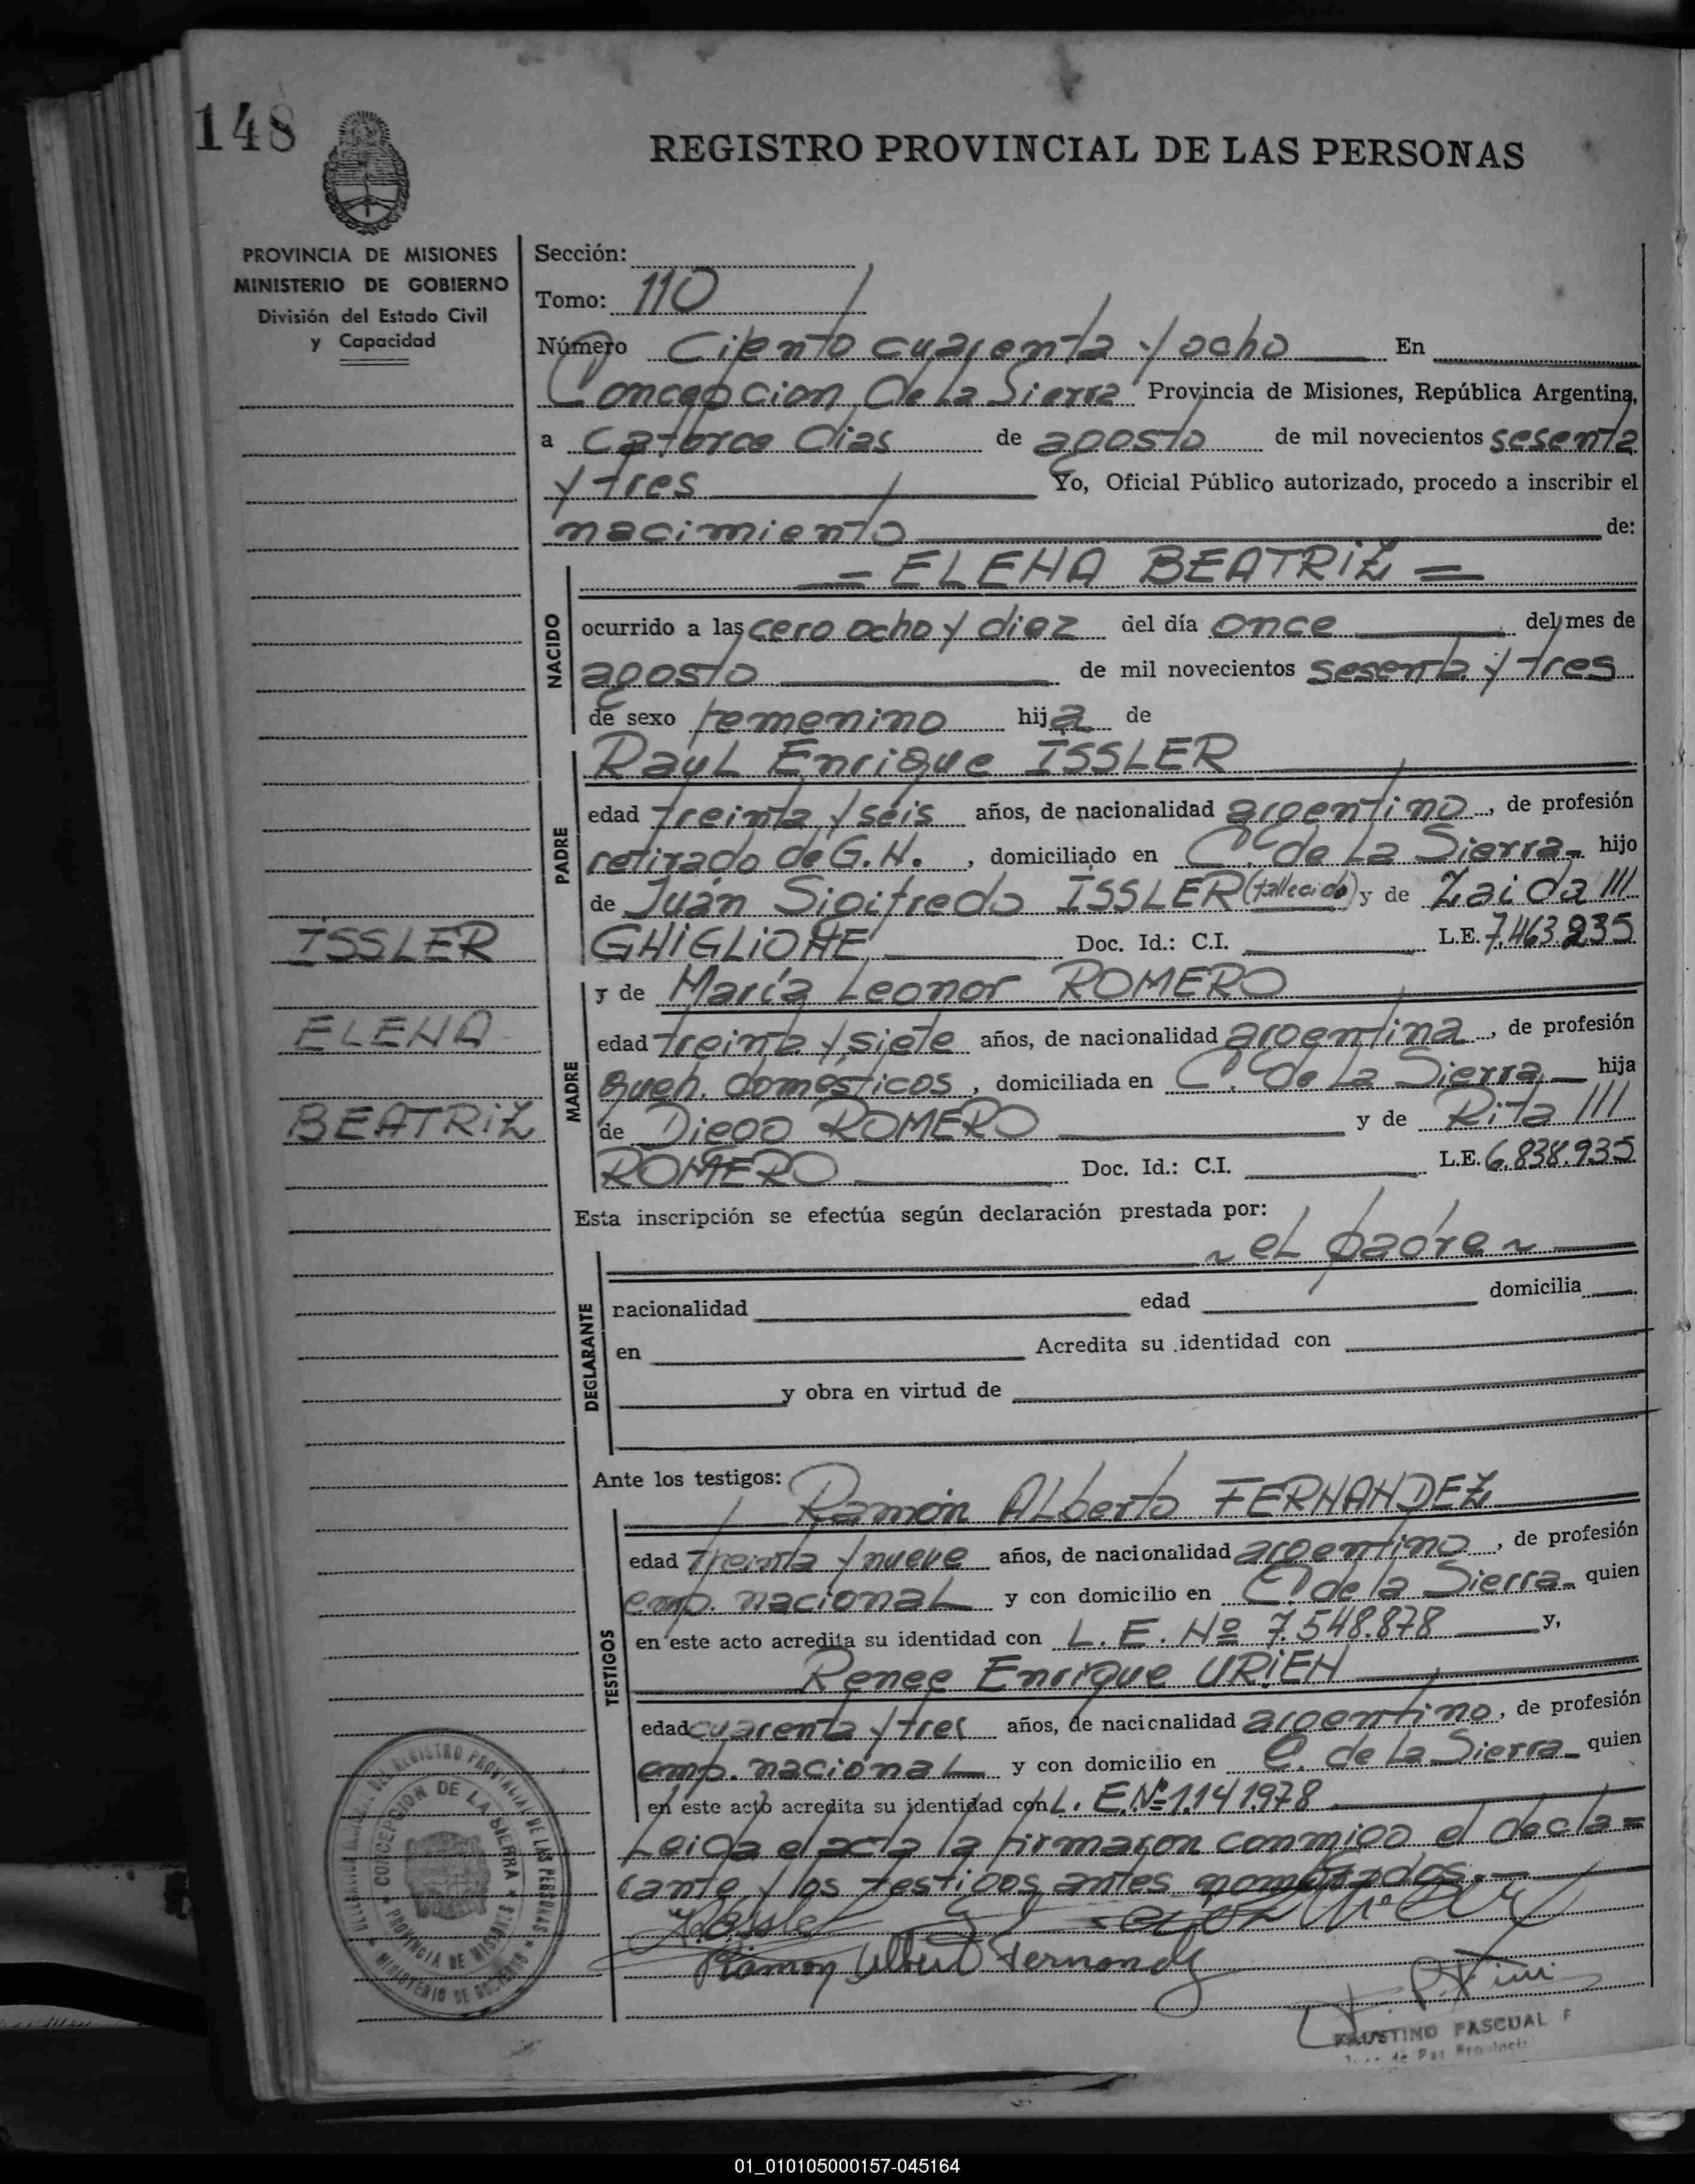 148
REGISTRO PROVINCIAL DE LAS PERSONAS
PROVINCIA DE MISIONES
MINISTERIO DE GOBIERNO
División del Estado Civil
y Capacidad
Sección:
Tomo: 110
Número Ciento cuarenta y ocho En
Concepcion de La Sierra Provincia de Misiones, República Argentina,
a catorce dias de agosto de mil novecientos sesenta
y tres Yo, Oficial Público autorizado, procedo a inscribir el
nacimiento de:
= ELENA BEATRIZ =
NACIDO
ocurrido a las cero ocho y diez del día once del mes de
agosto de mil novecientos sesenta y tres
de sexo femenino hija de
Raul Enrique ISSLER
PADRE
edad treinta y seis años, de nacionalidad argentino, de profesión
retirado de G.N., domiciliado en C. de La Sierra- hijo
de Juán Sigifredo ISSLER (fallecido) y de Zaida ///
GHIGLIONE Doc. Id.: C.I. L.E. 7.463.235
ISSLER
ELENA
BEATRIZ
y de María Leonor ROMERO
MADRE
edad treinta y siete años, de nacionalidad argentina, de profesión
queh. domésticos, domiciliada en C. de La Sierra hija
de Diego ROMERO y de Rita ///
ROMERO Doc. Id.: C.I. L.E. 6.838.935
Esta inscripción se efectúa según declaración prestada por:
~ el padre ~
DECLARANTE
nacionalidad edad domicilia
en Acredita su identidad con
y obra en virtud de
Ante los testigos:
Ramón ALberto FERNANDEZ
TESTIGOS
edad treinta y nueve años, de nacionalidad argentino, de profesión
emp. nacional y con domicilio en C. de la Sierra- quien
en este acto acredita su identidad con L. E. Nº 7.548.878 y,
Renee Enrique URIEN
edad cuarenta y tres años, de nacionalidad argentino, de profesión
emp. nacional y con domicilio en C. de La Sierra- quien
en este acto acredita su identidad con L. E. Nº 1.141.978
Leida el acta la firmaron conmigo el decla=
rante y los testigos antes nombrados.-
R. Issler
Ramon Albert Fernandez
DELEGACION DEL REGISTRO PROVINCIAL DE LAS PERSONAS
CONCEPCION DE LA SIERRA
PROVINCIA DE MISIONES
MINISTERIO DE GOBIERNO
FAUSTINO PASCUAL F
01_010105000157-045164